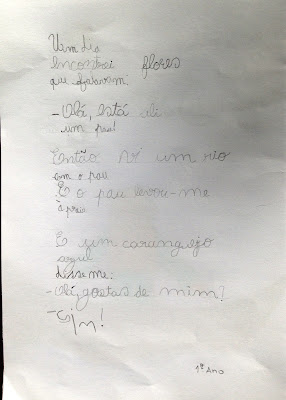 Um dia
Encontrei flores
que
- Olá, está ali
um pau!
Então vi um rio
com o pau
E o pau levou-me
à praia
E um carunguejo
azul
disse me:
- Olá, gostas de mim?
- Sim!
1º Ano